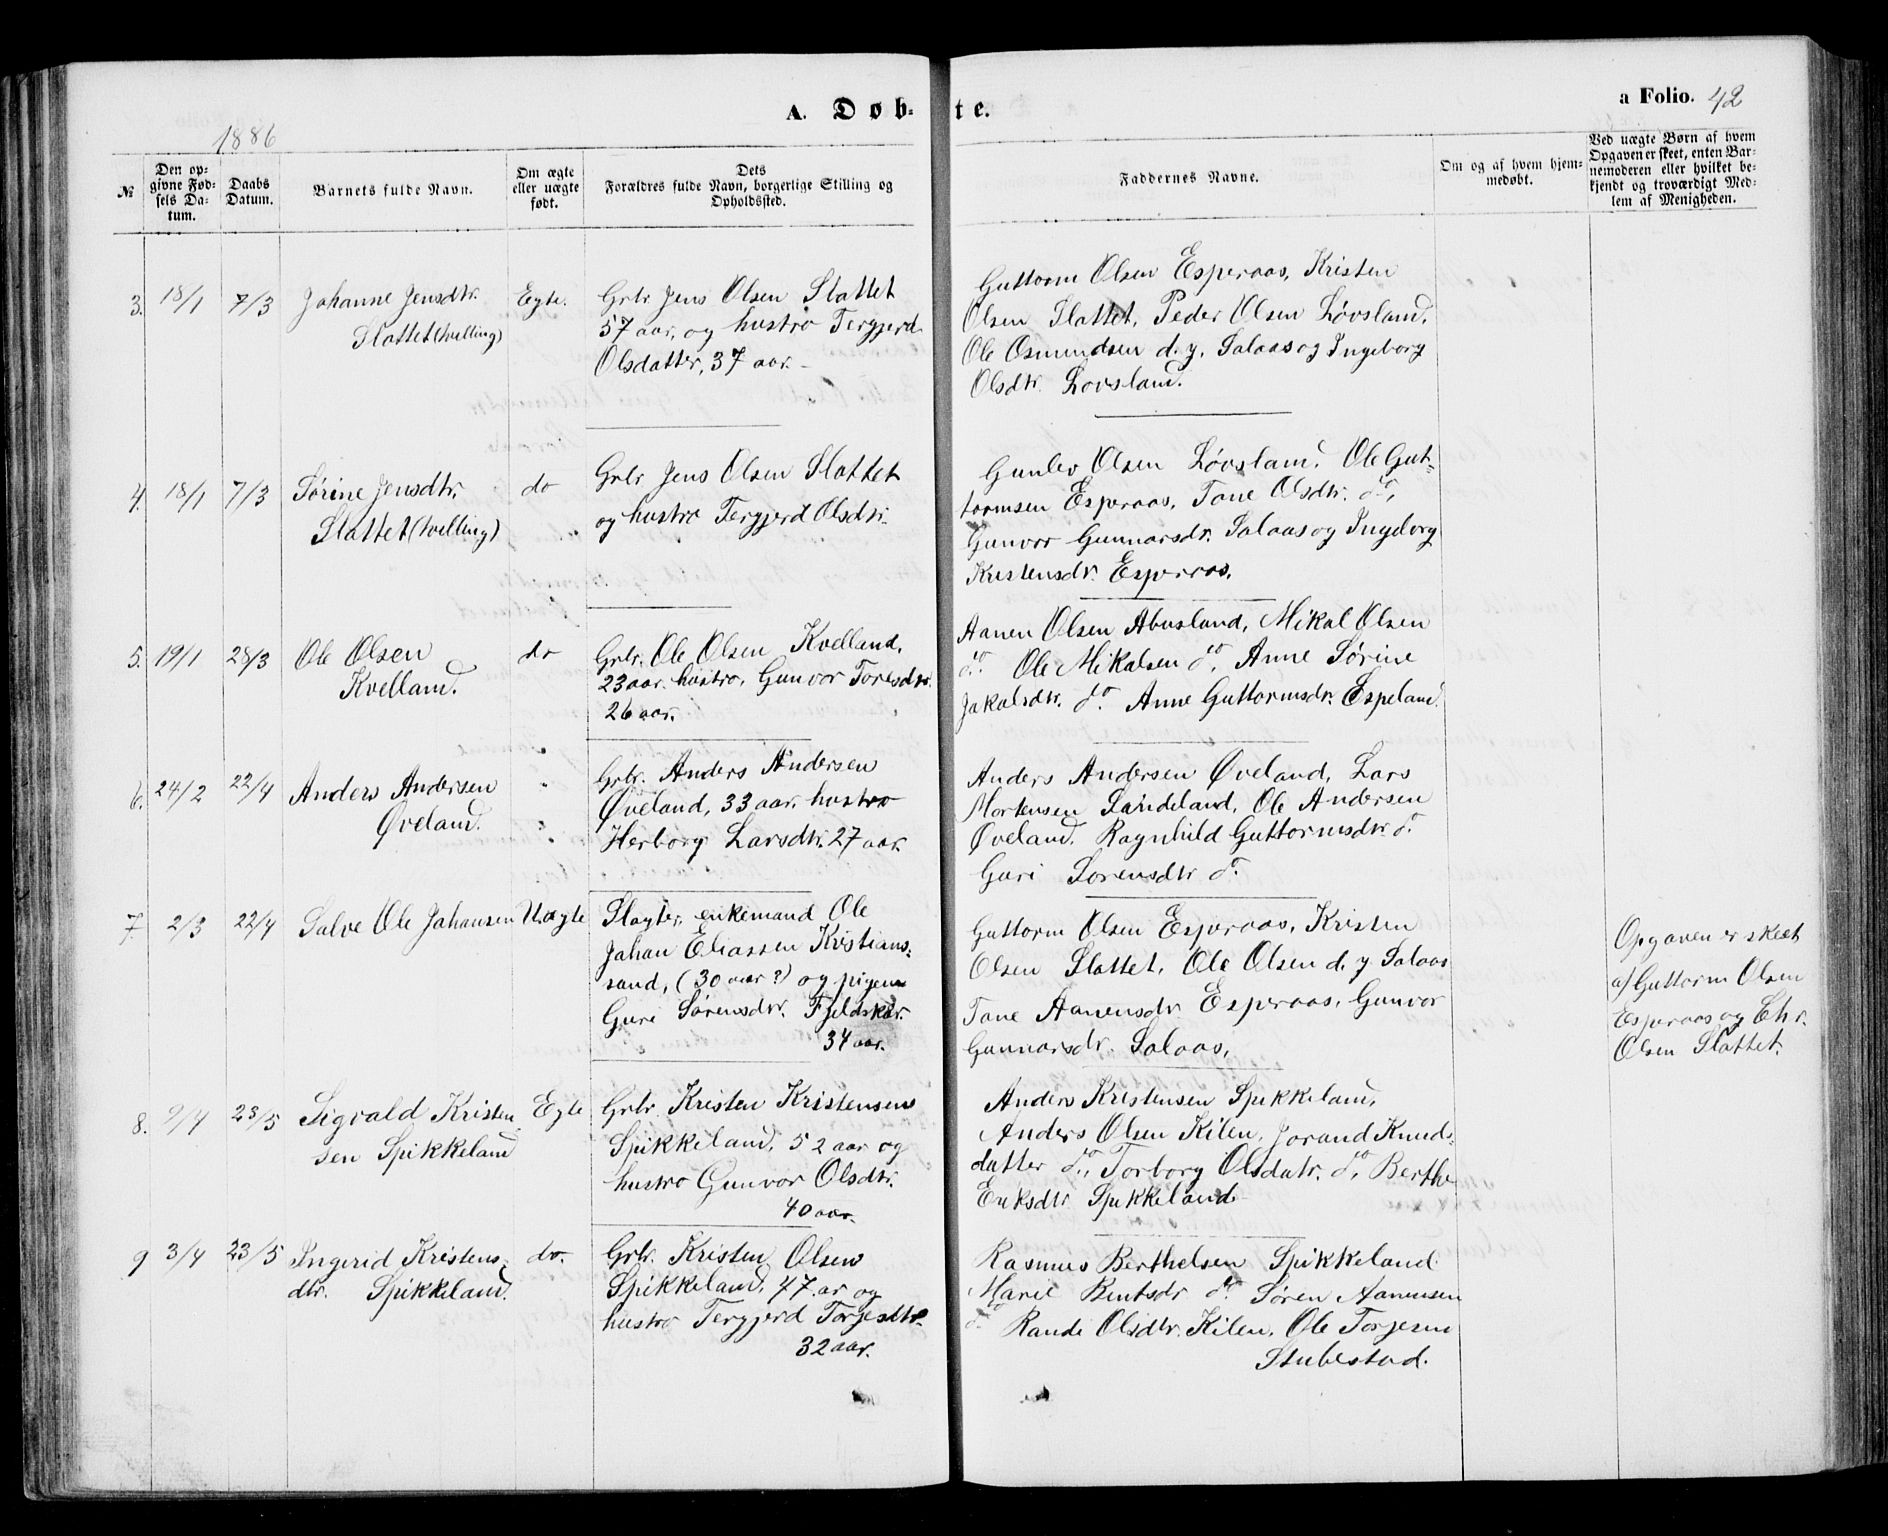 A. Døbte.
a Folio. 42
1886
№
Den opgivne Fødsels Datum.
Daabs Datum.
Barnets fulde Navn.
Om ægte eller uægte født.
Dets Forældres fulde Navn, borgerlige Stilling og Opholdssted.
Faddernes Navne.
Om og af hvem hjemmedøbt.
Ved uægte Børn af hvem Opgaven er skeet, enten Barnemoderen eller hvilket bekjendt og troværdigt Medlem af Menigheden.
3. 18/1 7/3 Johanne Jensdtr. Egte.
Slottet (tvelling)
Grbr Jens Olsen Slottet
57 aar, og hustro Tergjerd
Olsdatter, 37 aar.
Guttorm Olsen Esperaas, Kristen
Olsen Slattet, Peder Olsen Løvsland,
Ole Osmundsen d. y. Salaas og Ingeborg
Olsdtr. Lovsland.
4. 18/1 7/3 Sørine Jensdtr. do
Slattet (tvelling)
Grbr Jens Olsen Slottet
og hustro Tergjerd Olsdtr.
Gunlev Olsen Løvsland. Ole Gut-
tormsen Esperaas, Tone Olsdtr. do,
Gunvor Gunnarsdr. Salaas og Ingeborg
Kristensdr. Esperaas.
5. 19/1 28/3 Ole Olsen do
Kvelland.
Grbr. Ole Olsen Kvelland,
23 aar. hustro, Gunvor Toresdtr.
26 aar.
Aanen Olsen Abusland, Mikal Olsen
do. Ole Mikalsen do, Anne Sørine
Jakobsdtr. do. Anne Guttormsdr. Espeland.
6. 24/2 22/4 Anders Andersen "
Øveland.
Grbr. Anders Andersen
Øveland, 33 aar. hustro
Herborg Larsdtr. 27 aar.
Anders Andersen Øveland, Lars
Mortensen Landeland, Ole Andersen
Øveland. Ragnhild Guttormsdtr. do.
Guri Sorensdtr do.
7. 2/3 22/4 Salve Ole Johansen Uægte
Slagter, enkemand Ole
Johan Eliassen Kristians-
sand, (30 aar?) og pigen
Guri Sørensdtr. Fjeldskar.
34 aar.
Guttorm Olsen Esperaas, Kristen
Olsen Slattet, Ole Olsen d. y Salaas
Tone Aanensdr. Esperaas, Gunvor
Gunnarsdr. Salaas.
Opgaven er skeet
af Guttorm Olsen
Esperaas og Chr.
Olsen Slattet.
8. 2/4 23/5 Sigvald Kristen Egte
sen Spikkeland
Grbr. Kristen Kristensen
Spikkeland, 52 aar og
hustro Gunvor Olsdtr.
40 aar.
Anders Kristensen Spikkeland,
Anders Olsen Kilen, Jorand Knuds-
datter do., Torborg Olsdatr. do, Berthe
Eriksdtr Spikkeland
9 3/4 23/5 Ingerid Kristens- do.
dtr. Spikkeland.
Grbr. Kristen Olsen
Spikkeland, 47 ar og
hustro Tergjerd Torjesdtr.
32 aar.
Rasmus Berthelsen Spikkeland
Marie Bentsdr do. Søren Aanensen
do Randi Olsdtr. Kilen. Ole Torjesen
Stubestad.